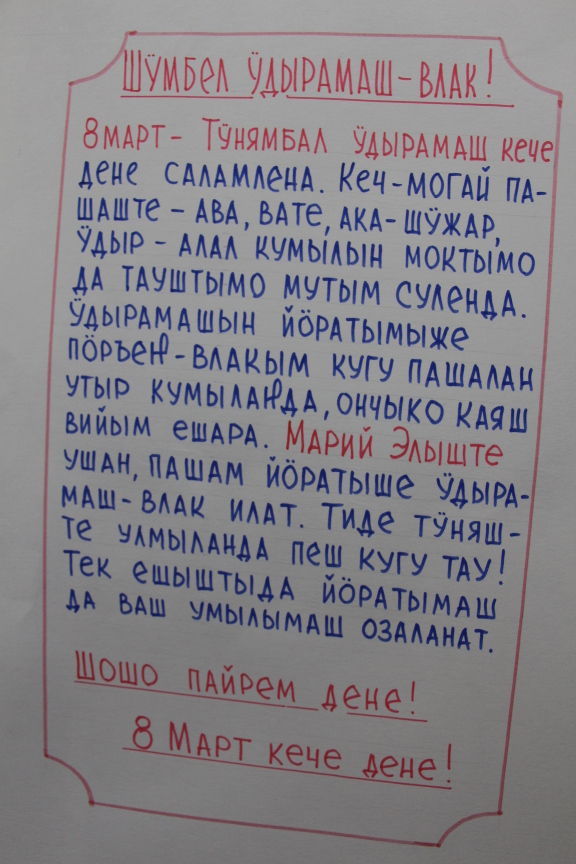 ШӰМБЕЛ ӰДЫРАМАШ-ВЛАК!
8 МАРТ - ТӰНЯМБАЛ ӰДЫРАМАШ КЕЧЕ
ДЕНЕ САЛАМЛЕНА. КЕЧ-МОГАЙ ПА-
ШАШТЕ - АВА, ВАТЕ, АКА-ШӰЖАР,
ӰДЫР - АЛАЛ КУМЫЛЫН МОКТЫМО
ДА ТАУШТЫМО МУТЫМ СУЛЕНДА.
ӰДЫРАМАШЫН ЙӦРАТЫМЫЖЕ
ПӦРЪЕҤ-ВЛАКЫМ КУГУ ПАШАЛАН
УТЫР КУМЫЛАҤДА, ОНЧЫКО КАЯШ
ВИЙЫМ ЕШАРА. МАРИЙ ЭЛЫШТЕ
УШАН, ПАШАМ ЙӦРАТЫШЕ ӰДЫРА-
МАШ-ВЛАК ИЛАТ. ТИДЕ ТӰНЯШ-
ТЕ УЛМЫЛАНДА ПЕШ КУГУ ТАУ!
ТЕК ЕШЫШТЫДА ЙӦРАТЫМАШ
ДА ВАШ УМЫЛЫМАШ ОЗАЛАНАТ.
ШОШО ПАЙРЕМ ДЕНЕ!
8 МАРТ КЕЧЕ ДЕНЕ!